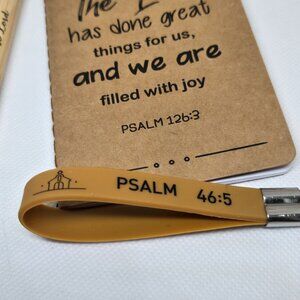 The
has done great
things for us,
and we are
filled with joy
PSALM 126:3
PSALM 46:5